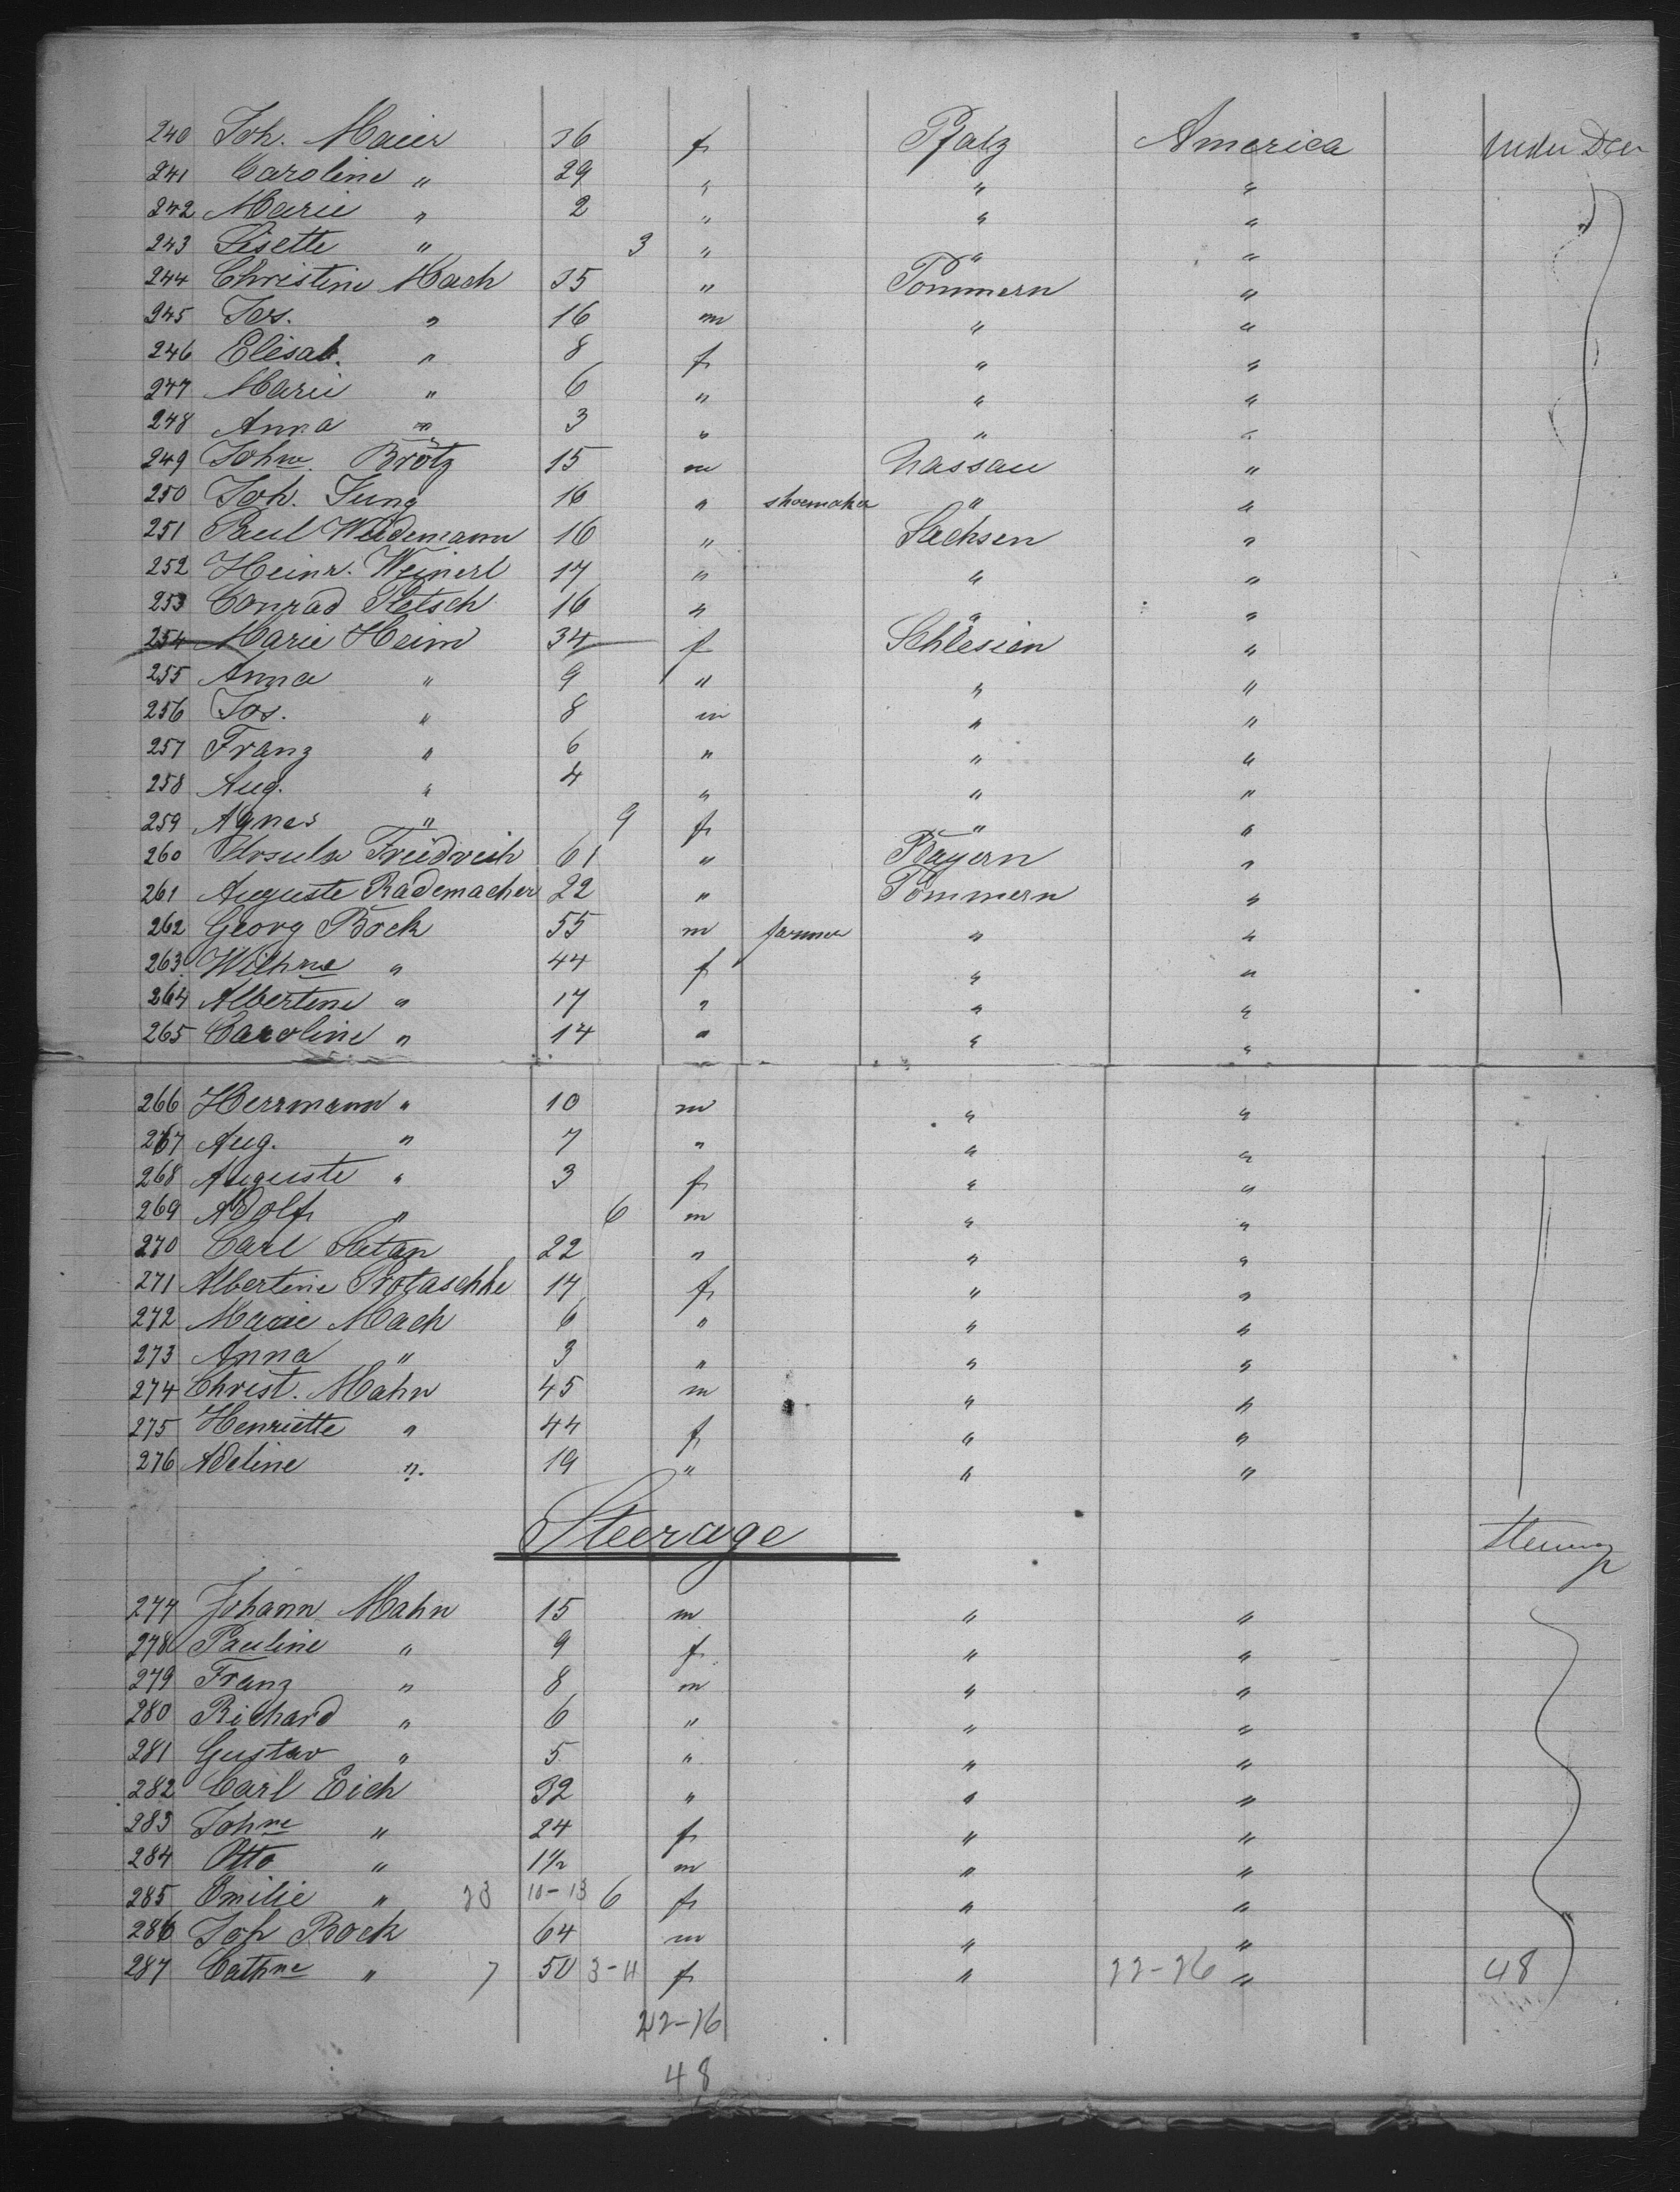 240 Joh. Maier 36 f Pfalz America under Dec
241 Caroline " 29 " " "
242 Marie " 2 " " "
243 Lisette " 3 " " "
244 Christine Mach 35 " Pommern "
245 Jos. " 16 m " "
246 Elisab. " 8 f " "
247 Marie " 6 " " "
248 Anna " 3 " " "
249 Johne Brötz 15 m Nassau "
250 Joh. Jung 16 " shoemaker " "
251 Paul Weidemann 16 " Sachsen "
252 Heinr. Weinerl 17 " " "
253 Conrad Pletsch 16 " " "
254 Marie Heim 34 f Schlesien "
255 Anna " 9 " " "
256 Jos. " 8 m " "
257 Franz " 6 " " "
258 Aug. " 4 " " "
259 Agnes " 9 f " "
260 Ursula Friedreich 61 " Bayern "
261 Auguste Rademacher 22 " Pommern "
262 Georg Bock 55 m farmer " "
263 Wilhne " 44 f " "
264 Albertine " 17 " " "
265 Caroline " 14 " " "
266 Herrmann " 10 m " "
267 Aug. " 7 " " "
268 Auguste " 3 f " "
269 Adolf " 6 m " "
270 Carl 22 " " "
271 Albertine Protaschke 17 f " "
272 Marie Mach 6 " " "
273 Anna " 3 " " "
274 Christ. Mahn 45 m " "
275 Henriette " 44 f " "
276 Adeline " 19 " " "
Steerage Steerage
277 Johann Mahn 15 m " "
278 Pauline " 9 f " "
279 Franz " 8 m " "
280 Richard " 6 " " "
281 Gustav " 5 " " "
282 Carl Eich 32 " " "
283 Johne " 24 f " "
284 Otto " 1½ m " "
285 Emilie " 23 10-13 6 f " "
286 Joh Bock 64 m " "
287 Cathne " 7 50 3-4 f " 22-26 " 48
22-26
48